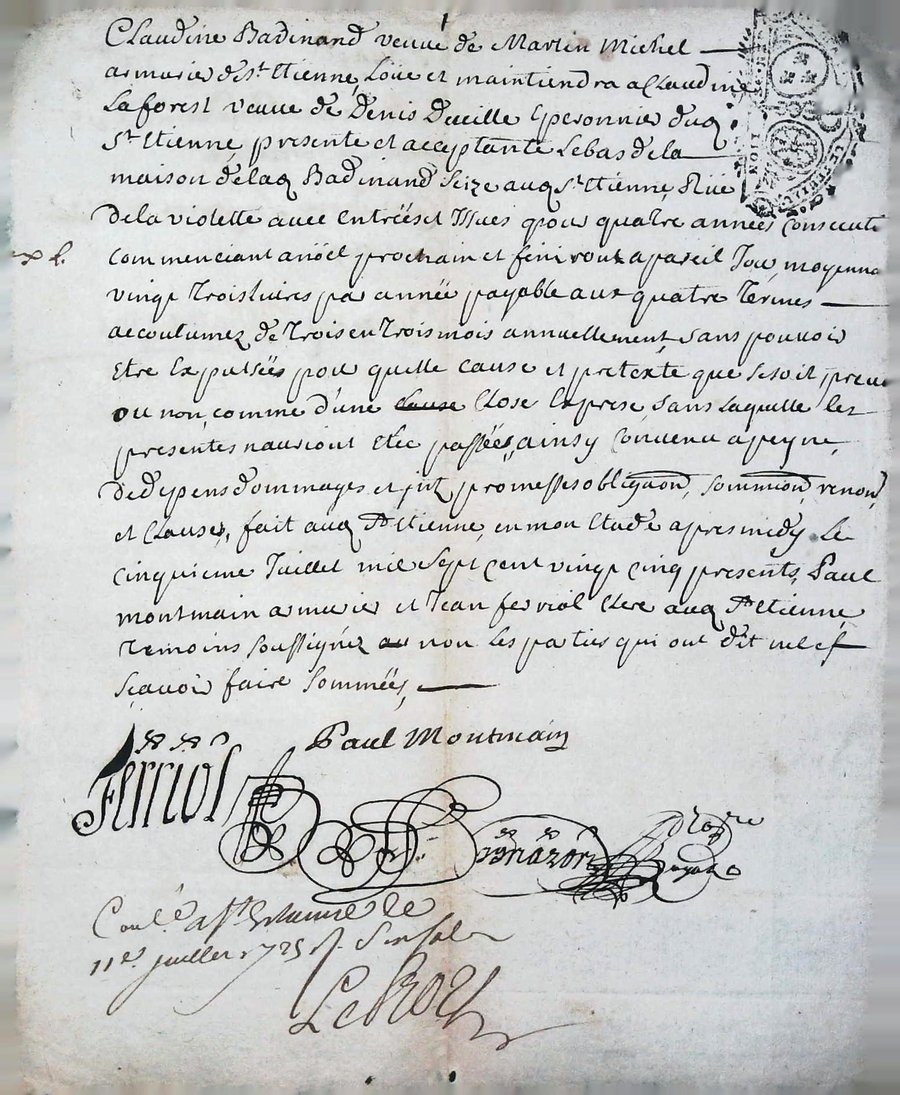 Claudine Badinand veuve de Martin Michel
armurier de St. Etienne, Loüe et maintiendra a Claudine
Laforest veuve de Denis Dreille Eperonnier dud
St. Etienne, presente et acceptante Le bas de la
maison de lad Badinand Size aud St. Etienne, Rüe
de la violette avec Entrées et Issues pour quatre années Consecuti
Commenciant a noël prochain et finiront a pareil Jour, moyenna
vingt trois livres par année payable aux quatre Termes
accoutumez de Trois en Trois mois annuellement, sans pouvoir
Etre Expulsées pour quelle cause et pretexte que se soit, preveu
ou non, comme d'une clause Close Expresse, sans Laquelle, les
presentes nauriont Etée passées, ainsy Convenu a peyne
de depens dommages et promesses obligaon, sommion, renon
et Clauses, fait aud St Etienne, en mon Etude apres midy Le
Cinquieme Juillet mil Sept Cent vingt Cinq presents, Paul
montmain armurier et Jean ferriol Clerc aud St Etienne
Temoins Soussignez non Les parties qui ont dit ne le
Sçavoir faire Sommées,
Ferriol
Paul Montmain
Conle a St Estienne le
11e juillet 1725 R. Six sols
LeRoy